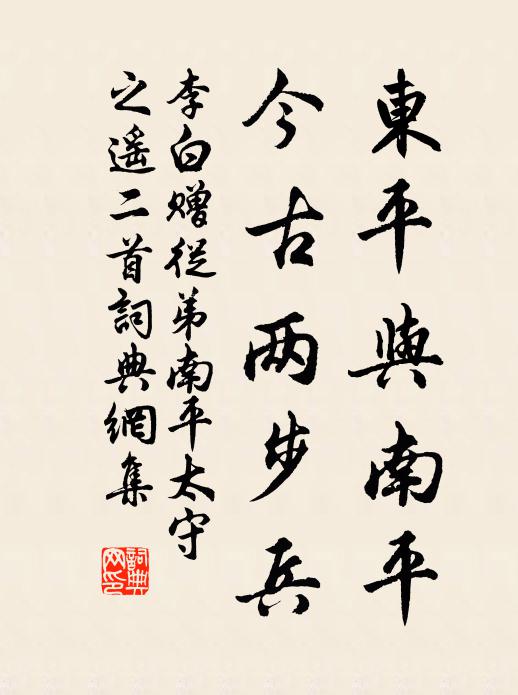 東平與南平
今古兩步兵
李白贈從弟南平太守
之遙二首詞典網集
詞典
网印